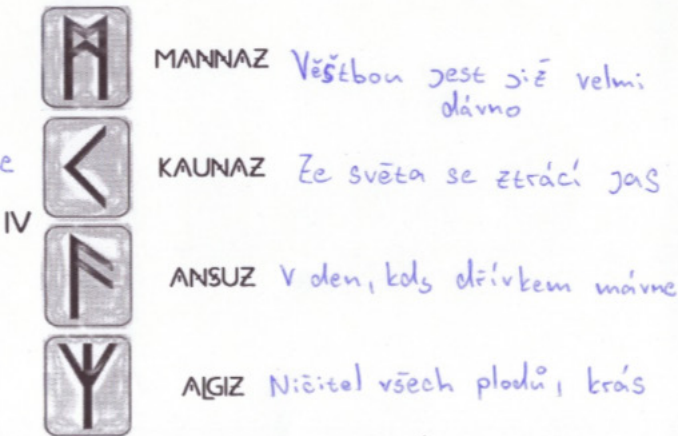 MANNAZ Věštbou jest již velmi
dávno
e
KAUNAZ Ze světa se ztrácí jas
IV
ANSUZ V den, kdy dřívkem mávne
ALGIZ Ničitel všech plodů, krás